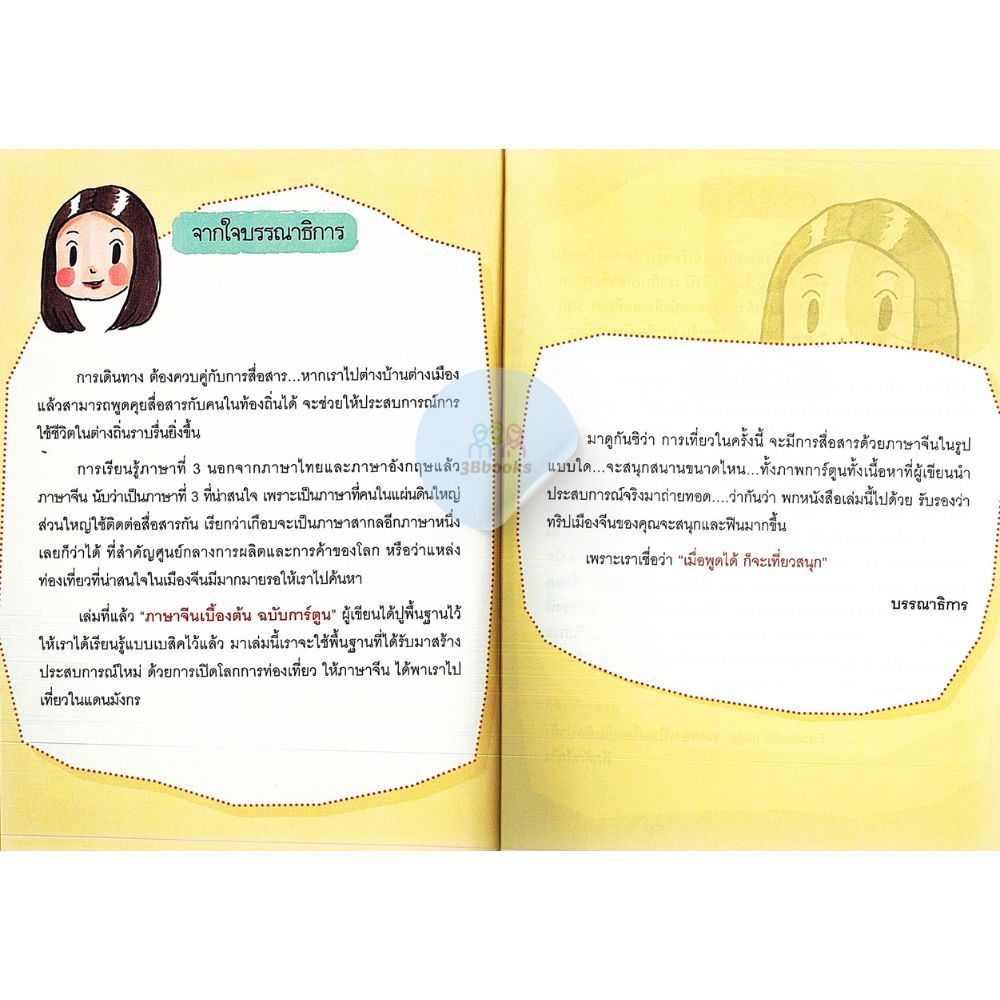 จากใจบรรณาธิการ
การเดินทาง ต้องควบคู่กับการสื่อสาร...หากเราไปต่างบ้านต่างเมือง
แล้วสามารถพูดคุยสื่อสารกับคนในท้องถิ่นได้ จะช่วยให้ประสบการณ์การ
ใช้ชีวิตในต่างถิ่นราบรื่นยิ่งขึ้น
การเรียนรู้ภาษาที่ 3 นอกจากภาษาไทยและภาษาอังกฤษแล้ว
ภาษาจีน นับว่าเป็นภาษาที่ 3 ที่น่าสนใจ เพราะเป็นภาษาที่คนในแผ่นดินใหญ่
ส่วนใหญ่ใช้ติดต่อสื่อสารกัน เรียกว่าเกือบจะเป็นภาษาสากลอีกภาษาหนึ่ง
เลยก็ว่าได้ ที่สำคัญศูนย์กลางการผลิตและการค้าของโลก หรือว่าแหล่ง
ท่องเที่ยวที่น่าสนใจในเมืองจีนมีมากมายรอให้เราไปค้นหา
เล่มที่แล้ว "ภาษาจีนเบื้องต้น ฉบับการ์ตูน" ผู้เขียนได้ปูพื้นฐานไว้
ให้เราได้เรียนรู้แบบเบสิคไว้แล้ว มาเล่มนี้เราจะใช้พื้นฐานที่ได้รับมาสร้าง
ประสบการณ์ใหม่ ด้วยการเปิดโลกการท่องเที่ยว ให้ภาษาจีน ได้พาเราไป
เที่ยวในแดนมังกร
3Bbooks
มาดูกันซิว่า การเที่ยวในครั้งนี้ จะมีการสื่อสารด้วยภาษาจีนในรูป
แบบใด...จะสนุกสนานขนาดไหน...ทั้งภาพการ์ตูนทั้งเนื้อหาที่ผู้เขียนนำ
ประสบการณ์จริงมาถ่ายทอด....ว่ากันว่า พกหนังสือเล่มนี้ไปด้วย รับรองว่า
ทริปเมืองจีนของคุณจะสนุกและฟินมากขึ้น
เพราะเราเชื่อว่า "เมื่อพูดได้ ก็จะเที่ยวสนุก"
บรรณาธิการ